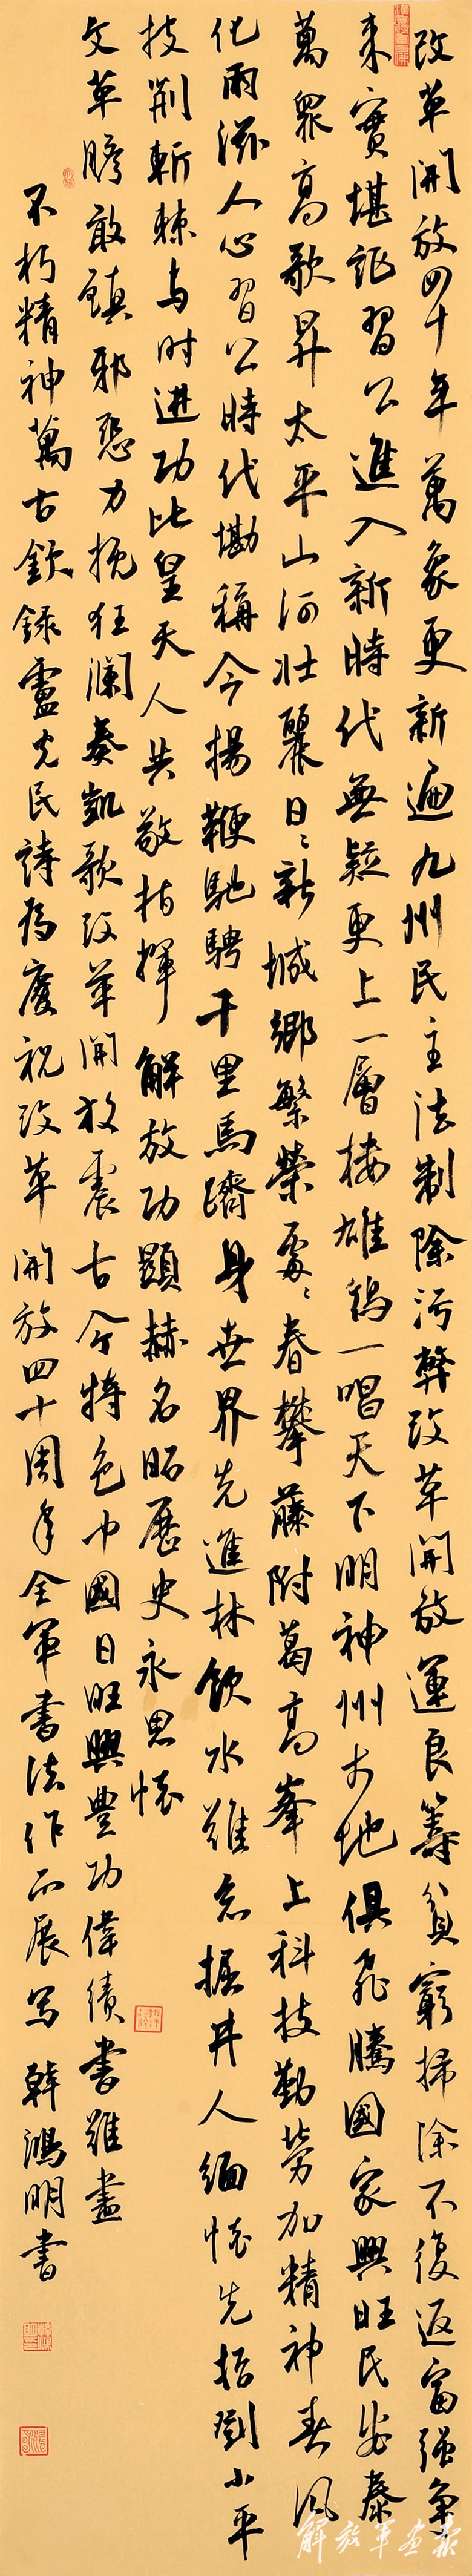 改革開放四十年萬象更新遍九州民主法制除污弊改革開放運良籌貧窮掃除不復返富强争
来實堪誇習公進入新時代無疑更上一層楼雄鷄一唱天下明神州大地俱飛騰國家興旺民安泰
萬衆高歌昇太平山河壮麗日日新城鄉繁榮處處春攀藤附葛高峯上科技勤劳加精神春風
化雨滋人心習公時代堪稱今揚鞭馳騁千里馬躋身世界先進林飲水難忘掘井人缅怀先指劉小平
披荆斬棘与时進功比皇天人共敬指揮解放功顯赫名昭歷史永思懷
文革膽敢鎮邪惡力挽狂瀾奏凱歌改革開放震古今特色中國日旺興豐功偉績書難盡
不朽精神萬古欽録盧光民詩为慶祝改革開放四十周年全軍書法作品展写韓鴻明書
解放军画报